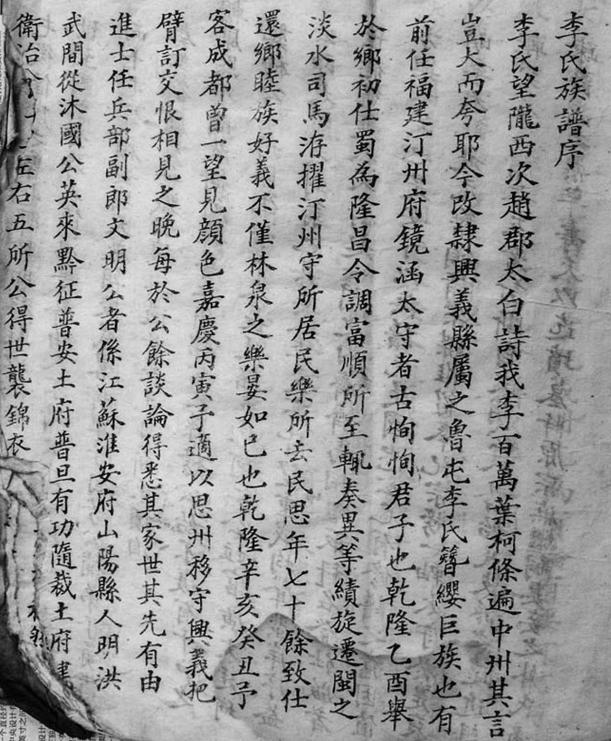 李氏族譜序
李氏望隴西次趙郡太白詩我李百萬葉柯條遍中州其言
豈大而夸耶今改隸興義縣屬之魯屯李氏簪纓巨族也有
前任福建汀州府鏡涵太守者古恂恂君子也乾隆乙酉舉
於鄉初仕蜀為隆昌令調富順所至輒奏異等績旋遷閩之
淡水司馬洊擢汀州守所居民樂所去民思年七十餘致仕
還鄉睦族好義不僅林泉之樂晏如已也乾隆辛亥癸丑予
客成都曾一望見顏色嘉慶丙寅予適以思州移守興義把
臂訂交恨相見之晚每於公餘談論得悉其家世其先有由
進士任兵部副郎文明公者係江蘇淮安府山陽縣人明洪
武間從沐國公英來黔征普安土府普旦有功隨裁土府建
衛治左右五所公得世襲錦衣